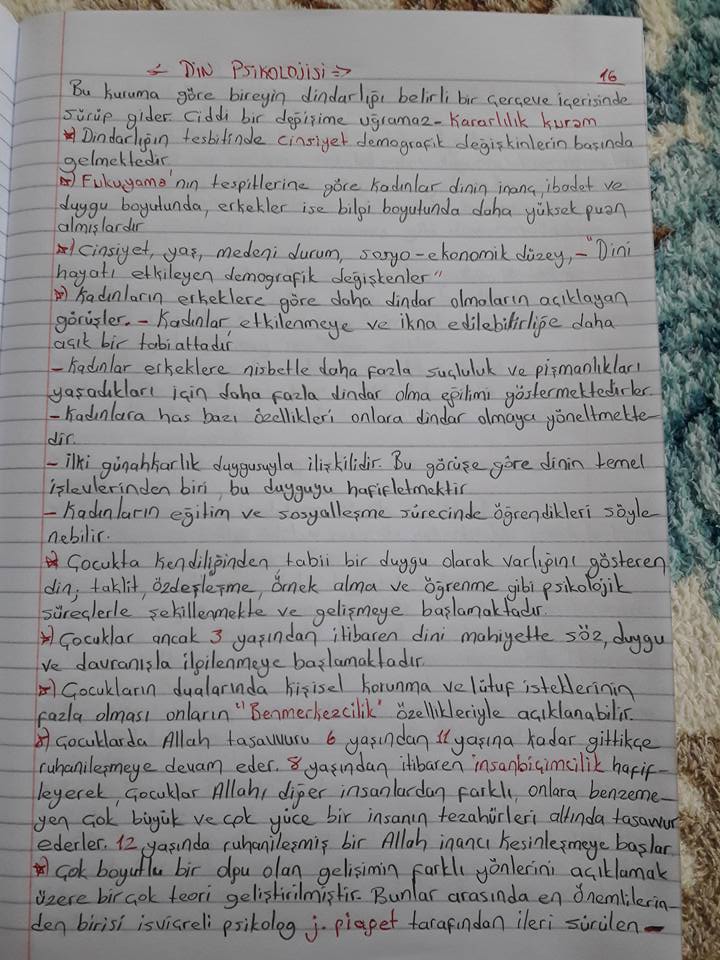 ← DİN PSİKOLOJİSİ => 16
Bu kurama göre bireyin dindarlığı belirli bir çerçeve içerisinde
sürüp gider. Ciddi bir değişime uğramaz - Kararlılık kuram
*) Dindarlığın tesbitinde cinsiyet demografik değişkinlerin başında
gelmektedir.
*) Fukuyama'nın tespitlerine göre kadınlar dinin inanç, ibadet ve
duygu boyutunda, erkekler ise bilgi boyutunda daha yüksek puan
almışlardır
*) Cinsiyet, yaş, medeni durum, sosyo-ekonomik düzey, - "Dini
hayatı etkileyen demografik değişkenler"
*) Kadınların erkeklere göre daha dindar olmaların açıklayan
görüşler. - Kadınlar, etkilenmeye ve ikna edilebilirliğe daha
açık bir tabiattadır
- Kadınlar erkeklere nisbetle daha fazla suçluluk ve pişmanlıkları
yaşadıkları için daha fazla dindar olma eğilimi göstermektedirler.
- Kadınlara has bazı özellikleri onlara dindar olmaya yöneltmekte-
dir.
- İlki günahkarlık duygusuyla ilişkilidir. Bu görüşe göre dinin temel
işlevlerinden biri, bu duyguyu hafifletmektir
- Kadınların eğitim ve sosyalleşme sürecinde öğrendikleri söyle
nebilir.
*) Çocukta kendiliğinden, tabii bir duygu olarak varlığını gösteren
din; taklit, özdeşleşme, örnek alma ve öğrenme gibi psikolojik
süreçlerle şekillenmekte ve gelişmeye başlamaktadır.
*) Çocuklar ancak 3 yaşından itibaren dini mahiyette söz, duygu
ve davranışla ilgilenmeye başlamaktadır.
*) Çocukların dualarında kişisel korunma ve lütuf isteklerinin
fazla olması onların "Benmerkezcilik" özellikleriyle açıklanabilir.
*) Çocuklarda Allah tasavvuru 6 yaşından 11 yaşına kadar gittikçe
ruhanileşmeye devam eder. 8 yaşından itibaren insanbiçimcilik hafif-
leyerek, çocuklar Allahı, diğer insanlardan farklı, onlara benzeme-
yen çok büyük ve çok yüce bir insanın tezahürleri altında tasavvur
ederler. 12 yaşında ruhanileşmiş bir Allah inancı kesinleşmeye başlar.
*) Çok boyutlu bir olgu olan gelişimin farklı yönlerini açıklamak
üzere birçok teori geliştirilmiştir. Bunlar arasında en önemlilerin-
den birisi isviçreli psikolog j. piaget tarafından ileri sürülen -